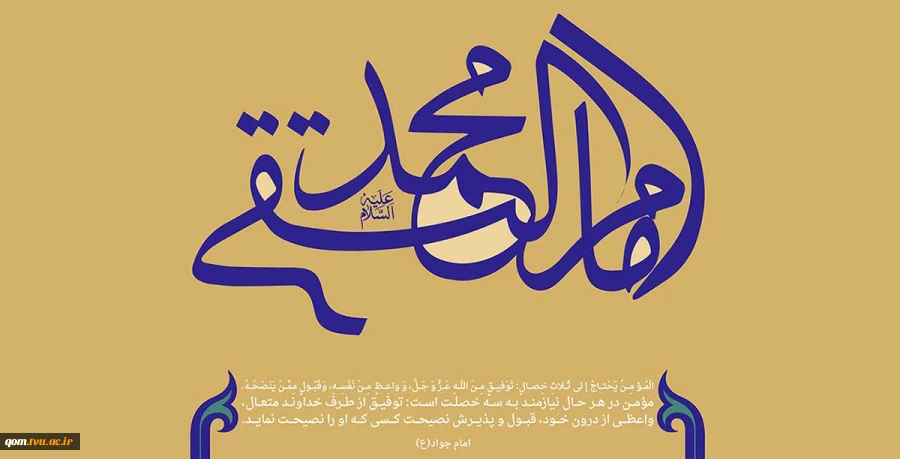 امام محمد التقی
عَلَیْهِ السَّلام
الْمُؤمِنُ يَحْتاجُ إلى ثَلاثِ خِصالٍ: تَوْفیقٍ مِنَ اللّهِ عَزَّ وَ جَلَّ، وَ واعِظٍ مِنْ نَفْسِهِ، وَقَبُولٍ مِمَّنْ یَنْصَحُهُ.
مؤمن در هر حال نیازمند به سه خصلت است: توفیق از طرف خداوند متعال،
واعظی از درون خود، قبول و پذیرش نصیحت کسی که او را نصیحت نماید.
امام جواد(ع)
qom.tvu.ac.ir